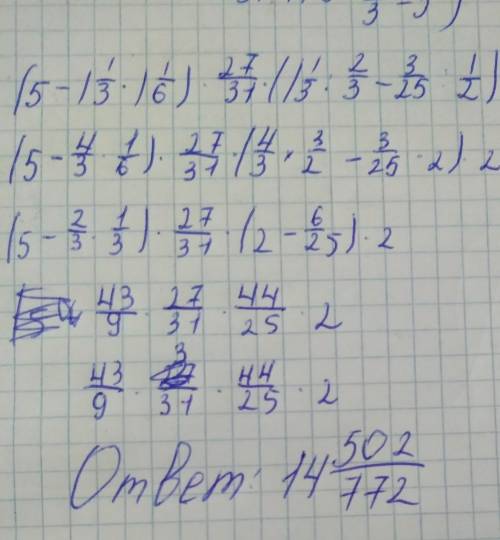 (5 - 1 1/3 · 1 1/6) · 27/31 · (1 1/3 · 2/3 - 3/25 · 1/2)
(5 - 4/3 · 1/6) · 27/31 · (4/3 × 3/2 - 3/25 · 2) · 2
(5 - 2/3 · 1/3) · 27/31 · (2 - 6/25) · 2
43/9 · 27/31 · 44/25 · 2
43/9 · 3/31 · 44/25 · 2
Ответ: 14 502/772